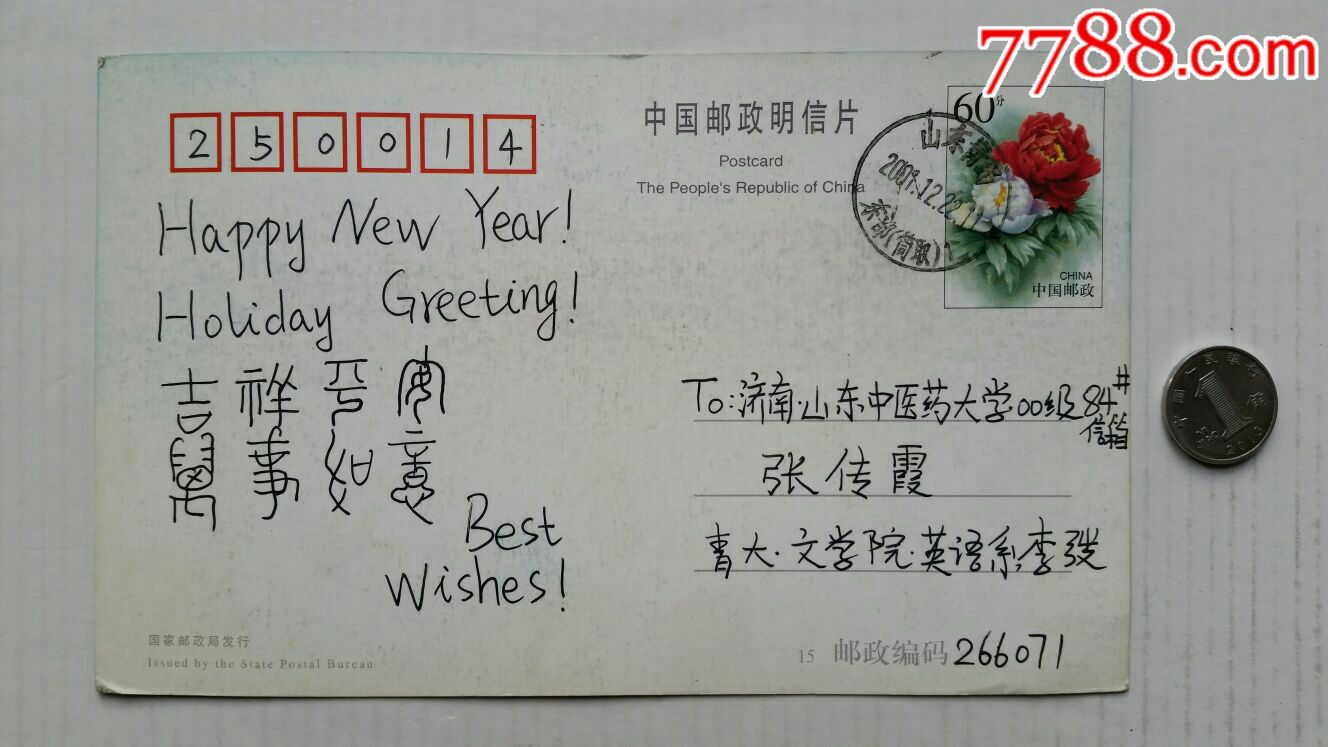 7788.com
中国邮政明信片
Postcard
The People's Republic of China
60分
CHINA
中国邮政
山东青岛
2001.12.22.11
东部(筒取)1
250014
Happy New Year!
Holiday Greeting!
吉祥平安
萬事如意
Best
Wishes!
To:济南·山东中医药大学00级84#
信箱
张传霞
青大·文学院·英语系·李
国家邮政局发行
Issued by the State Postal Bureau
15 邮政编码266071
中国人民银行
1
2013